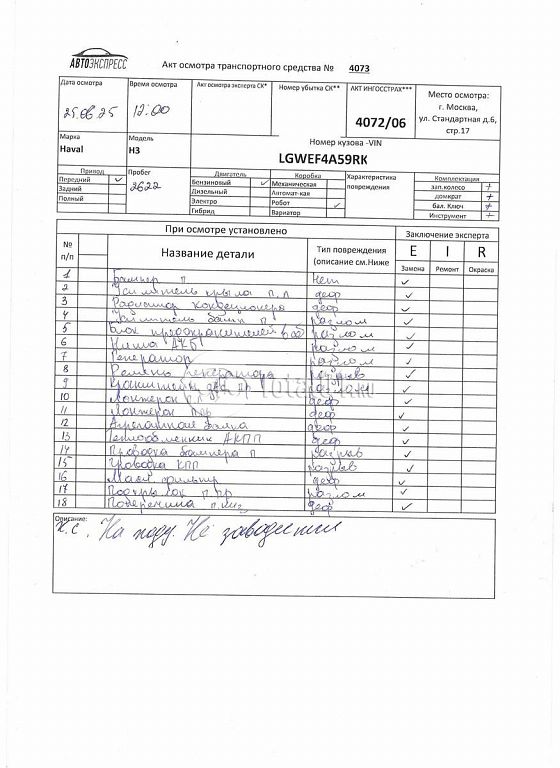 АВТОЭКСПРЕСС
Акт осмотра транспортного средства № 4073
Дата осмотра
25.06.25
Время осмотра
12:00
Акт осмотра эксперта СК*
Номер убытка СК**
АКТ ИНГОССТРАХ***
4072/06
Место осмотра:
г. Москва,
ул. Стандартная д.6,
стр.17
Марка
Haval
Модель
H3
Номер кузова -VIN
LGWEF4A59RK
Привод
Передний ✓
Задний
Полный
Пробег
2622
Двигатель
Бензиновый ✓
Дизельный
Электро
Гибрид
Коробка
Механическая
Автомат-кая
Робот ✓
Вариатор
Характеристика
повреждения
Комплектация
зап.колесо +
домкрат +
бал. Ключ +
Инструмент +
При осмотре установлено
Заключение эксперта
№ п/п
Название детали
Тип повреждения
(описание см.Ниже
E I R
Замена Ремонт Окраска
1 Бампер п нет ✓
2 Усилитель крыла п, л деф ✓
3 Радиатор кондиционера деф ✓
4 Усилитель бамп п разлом ✓
5 Блок предохранителей разлом ✓
6 АКБ разлом ✓
7 Генератор разлом ✓
8 Ремень генератора разрыв ✓
9 Кронштейн разлом ✓
10 Лонжерон деф ✓
11 Лонжерон деф ✓
12 деф ✓
13 Теплообменник АКПП деф ✓
14 Проводка бампера п разрыв ✓
15 Проводка КПП разрыв ✓
16 Масл. фильтр деф ✓
17 Подкрылок п. пр разлом ✓
18 Поперечина п. деф ✓
Описание:
х.с. На ходу. Не заводится